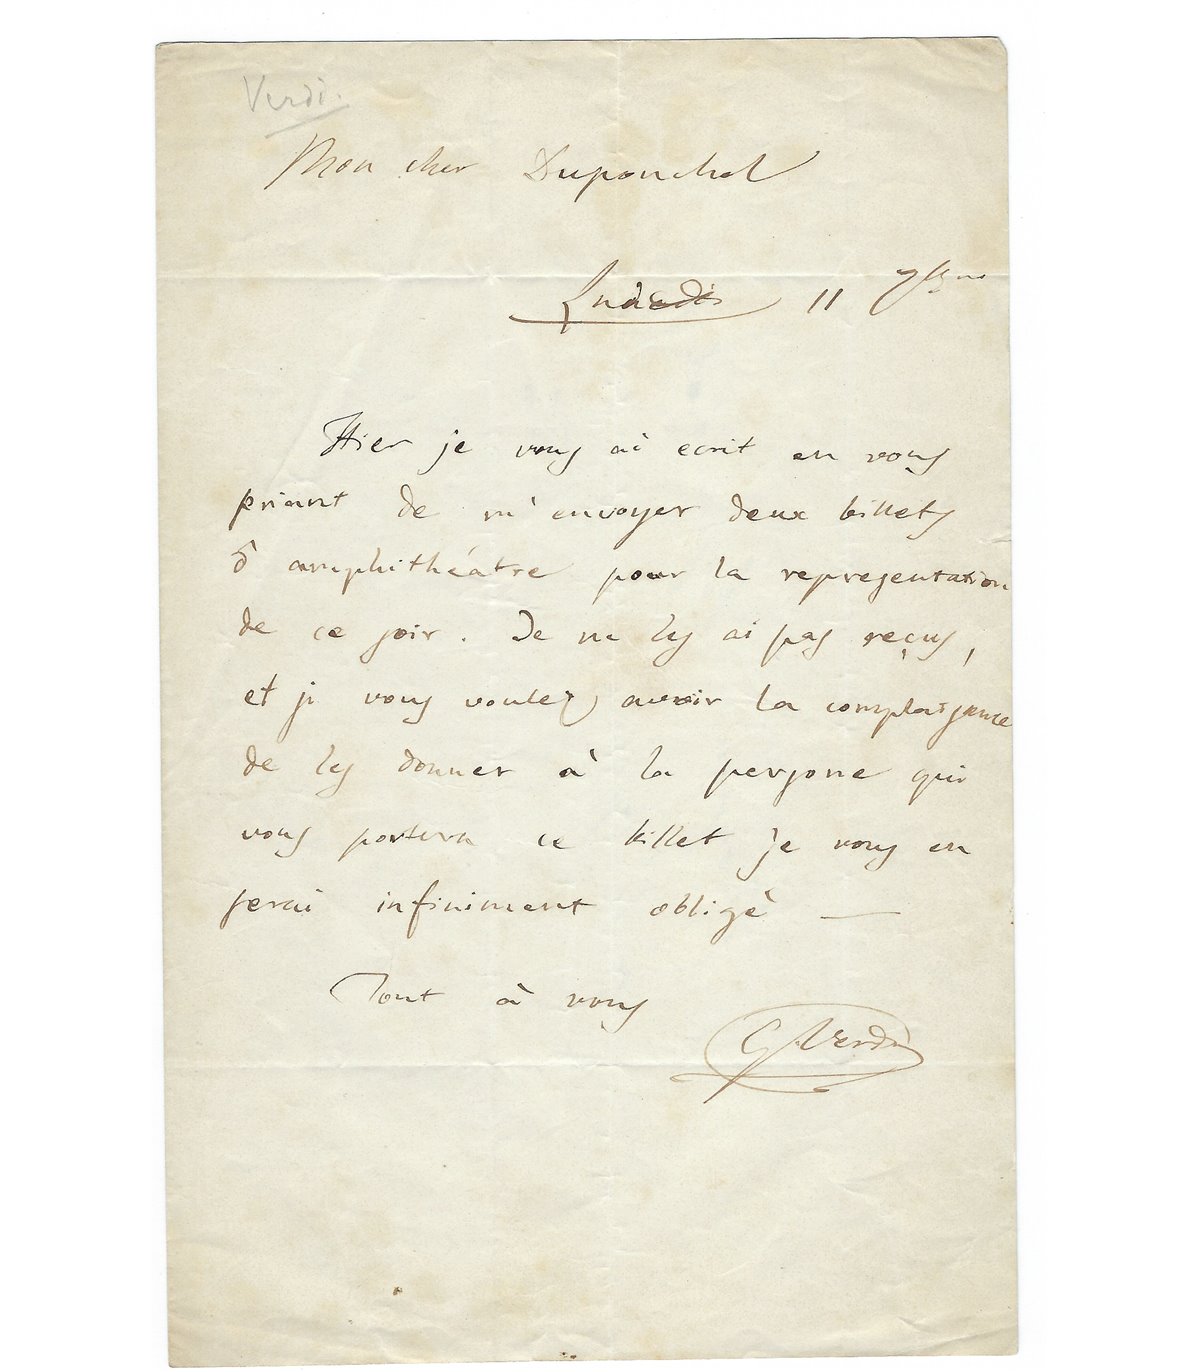 Verdi.
Mon cher Duponchel
Lundi 11 7bre
Hier je vous ai ecrit en vous
priant de m'envoyer deux billets
d'amphithéatre pour la representation
de ce soir. Je ne les ai pas reçus,
et si vous voulez avoir la complaisance
de les donner à la persone qui
vous portera ce billet je vous en
serai infiniment obligé —
Tout à vous
G. Verdi